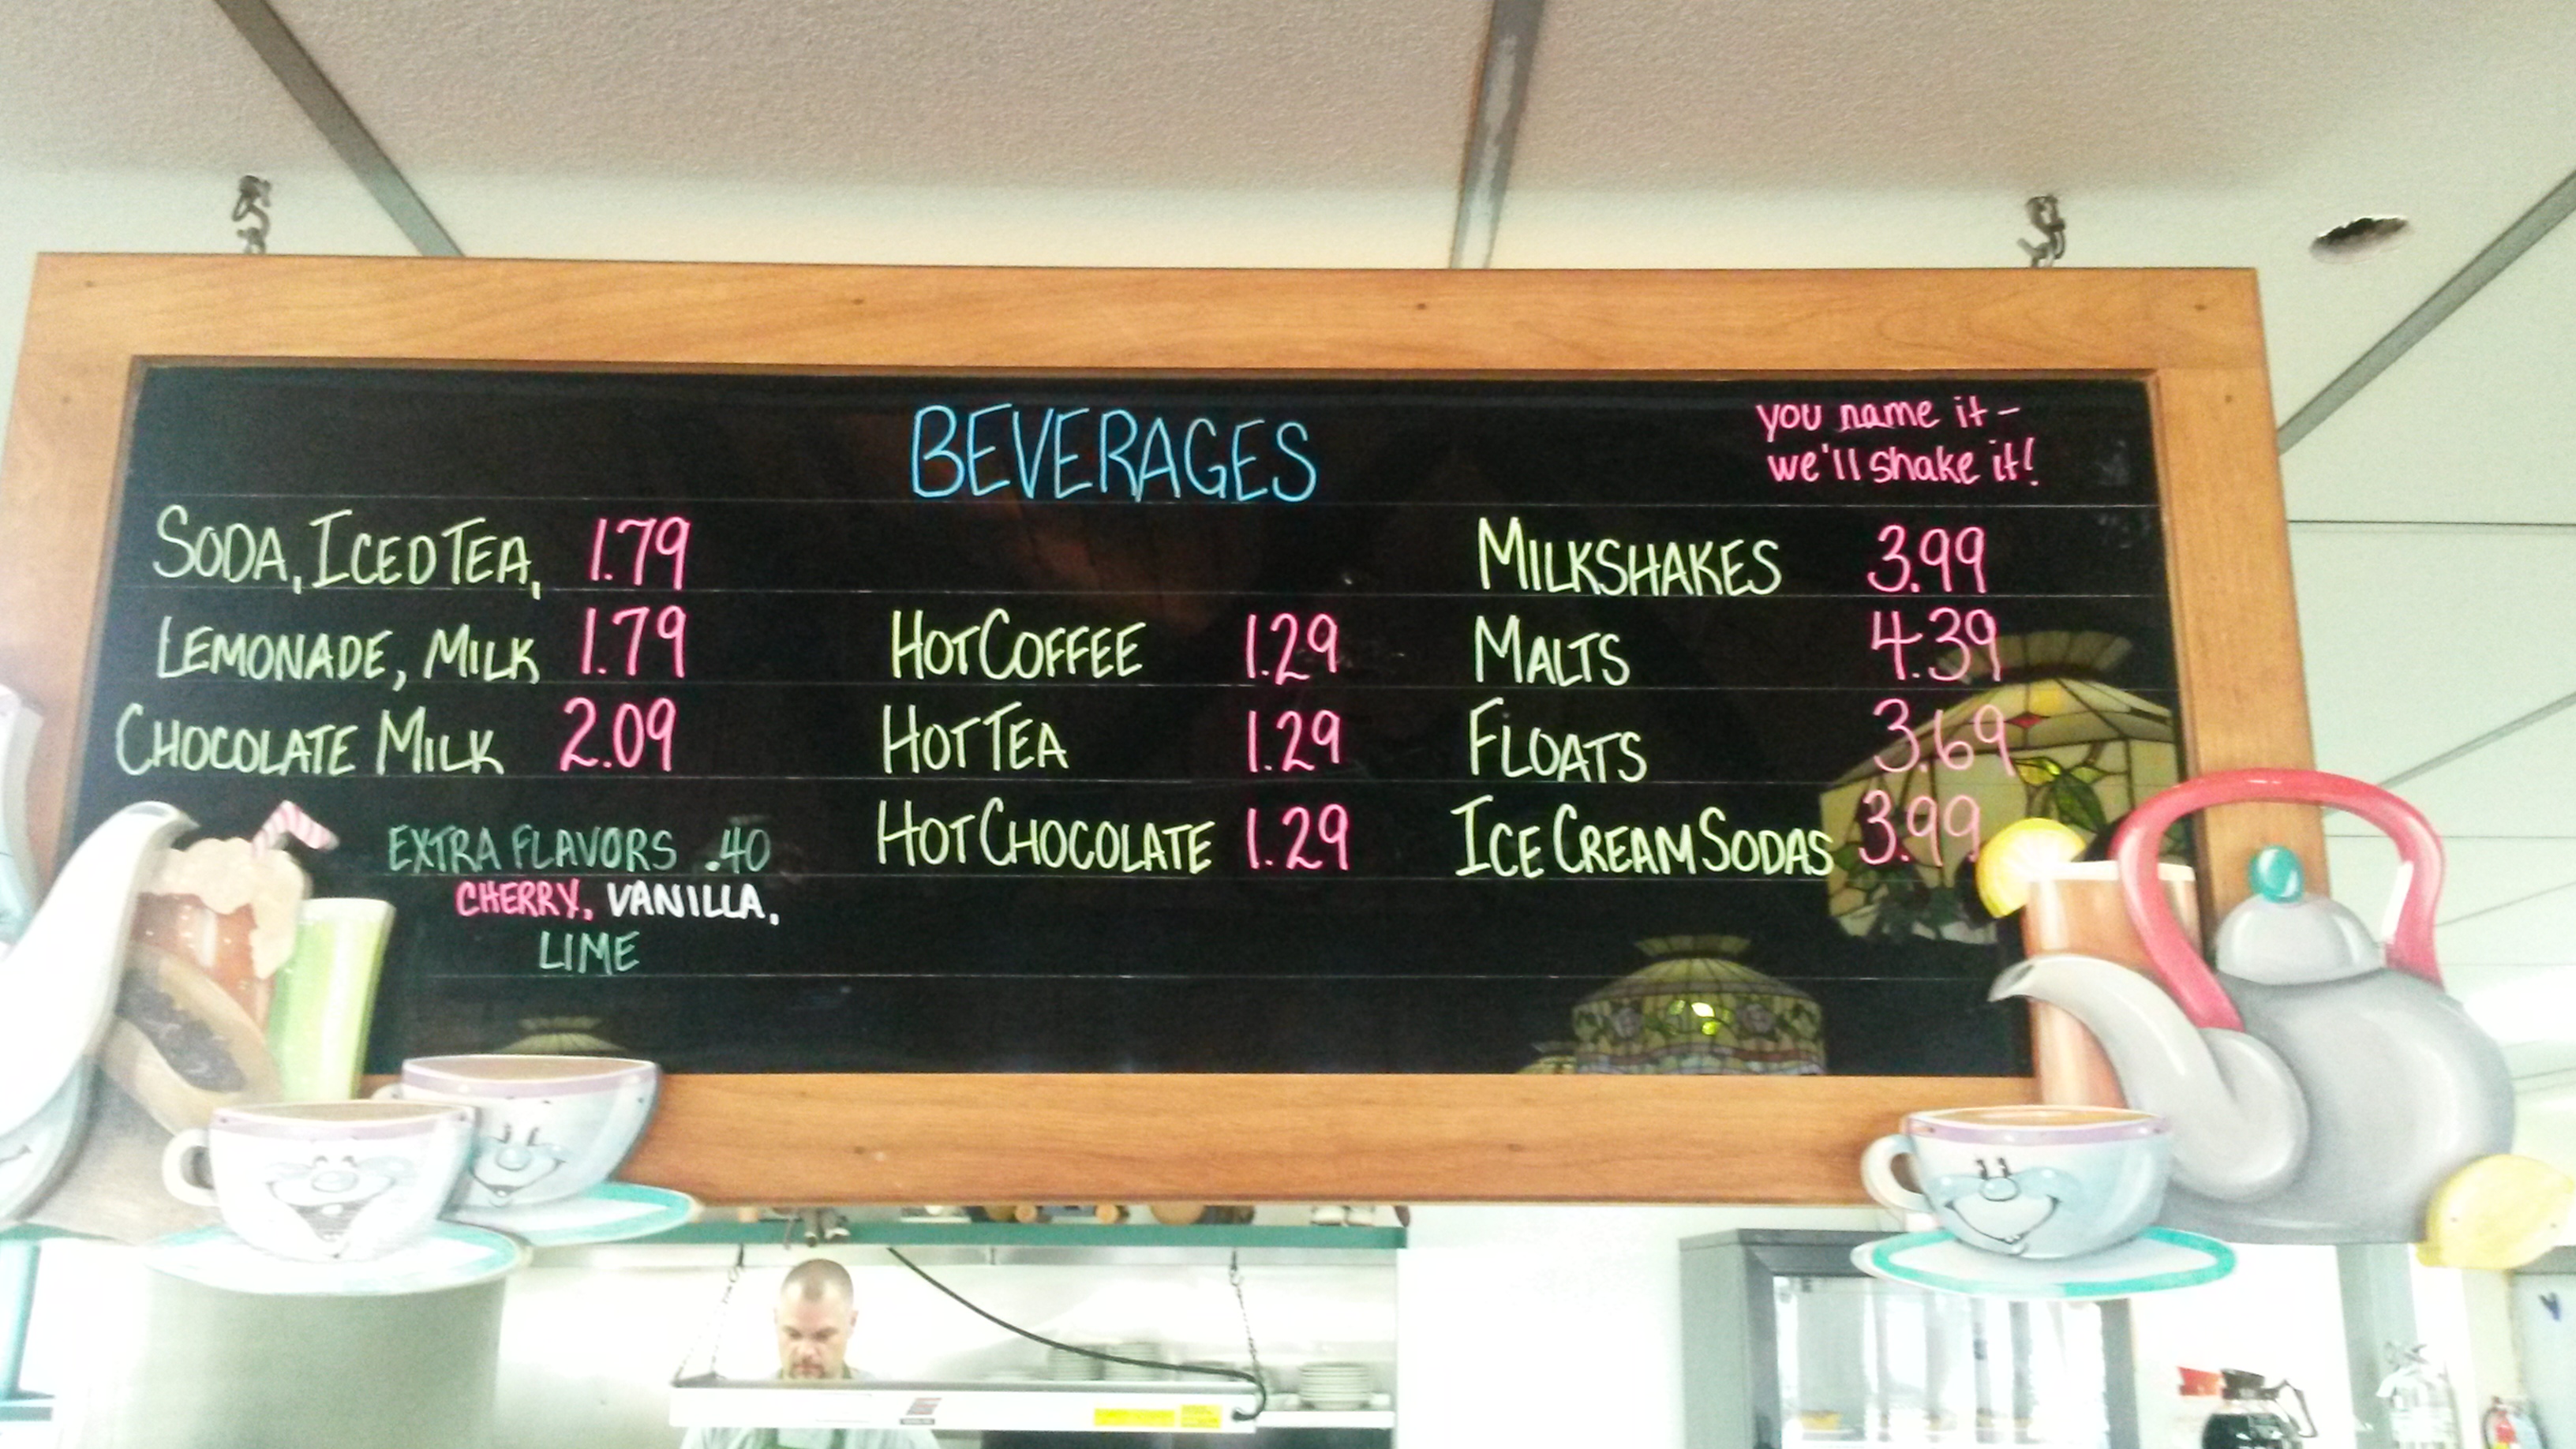 BEVERAGES
you name it -
we'll shake it!
SODA, ICED TEA, 1.79
LEMONADE, MILK 1.79
CHOCOLATE MILK 2.09
EXTRA FLAVORS .40
CHERRY, VANILLA,
LIME
HOT COFFEE 1.29
HOT TEA 1.29
HOT CHOCOLATE 1.29
MILKSHAKES 3.99
MALTS 4.39
FLOATS 3.69
ICE CREAM SODAS 3.99